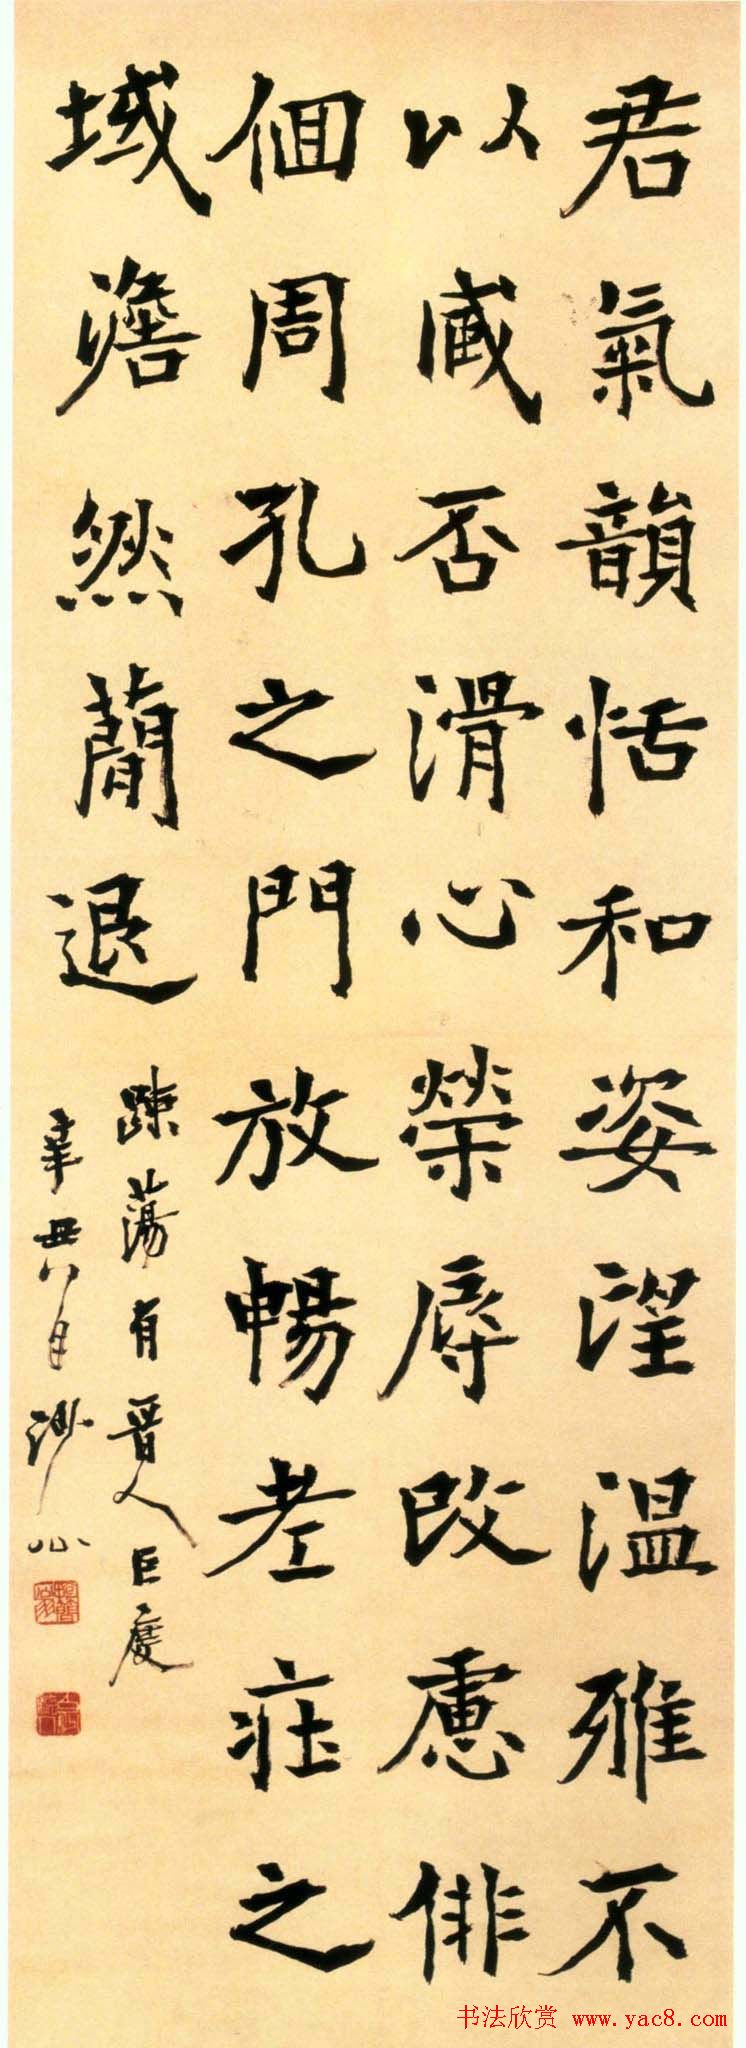 君氣韻恬和姿望温雅不
以臧否滑心榮辱改慮俳
佪周孔之門放暢老莊之
域澹然蕳退
踈蕩有晋人巨度
辛丑八月沙
书法欣赏 www.yac8.com